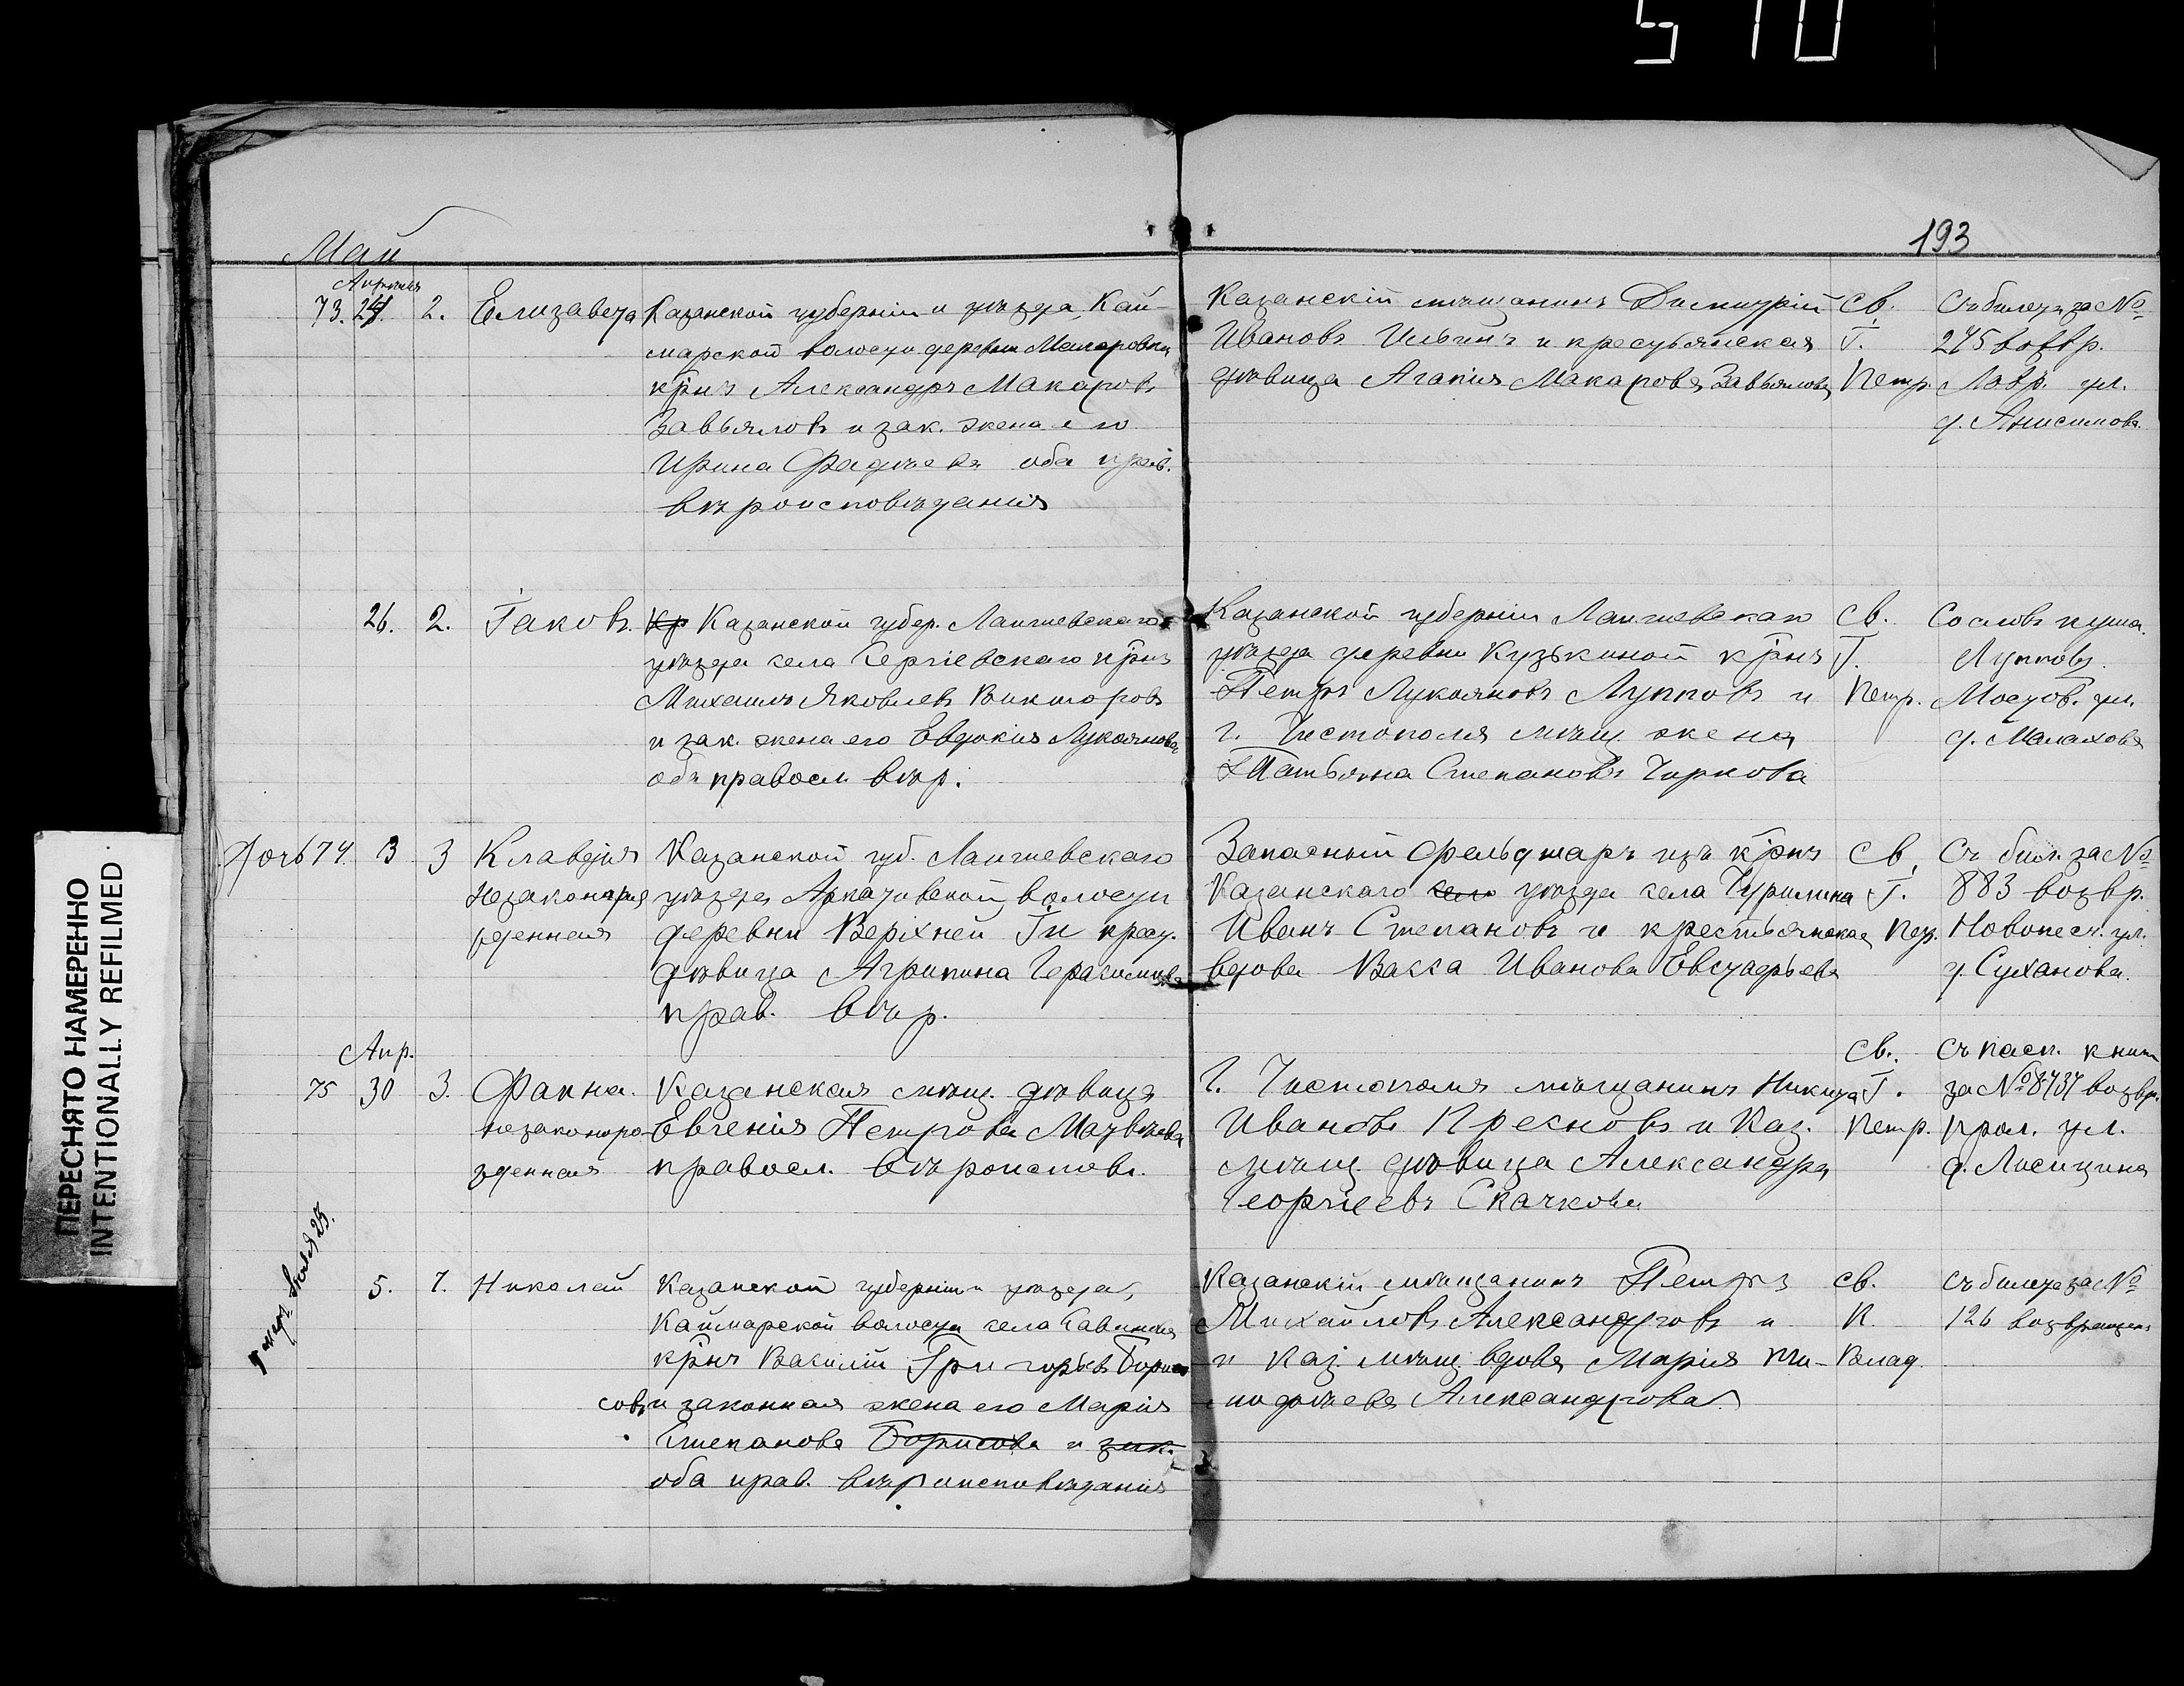 510
193
Май
Апреля
73. 24. 2. Елизавета
Казанской губернiи и уѣзда, Кай-
марской волости деревни Макаровки
крнъ Александръ Макаровъ
Завьяловъ и зак. жена его
Ирина Фадѣева оба прав.
вѣроисповѣданiя
Казанскiй мѣщанинъ Димитрiй
Ивановъ Ильинъ и крестьянская
дѣвица Агапiя Макарова Завьялова
Св.
Г.
Петр.
Съ билета за №
275 возвр.
Лавр. ул.
д. Анисимова.
26. 2. Iаковъ.
Кр Казанской губер. Лаишевскаго
уѣзда села Сергiевскаго крнъ
Михаилъ Яковлевъ Викторовъ
и зак. жена его Евдокiя Лукоянова
оба правосл. вѣр.
Казанской губернiи Лаишевскаго
уѣзда деревни Кузькиной крнъ
Петръ Лукояновъ Лупповъ и
г. Чистополя мѣщ. жена
Татьяна Степанова Чиркова
Св.
Г.
Петр.
Со словъ кума.
Лупповъ.
Мостов. ул.
д. Малахова
дочь 74. 3 3 Клавдiя
незаконоро
жденная
Казанской губ. Лаишевскаго
уѣзда волости
деревни Верхней крест.
дѣвица Агрипина Герасимова
прав. вѣр.
Запасный фельдшаръ изъ крнъ
Казанскаго село уѣзда села Чурилина
Иванъ Степановъ и крестьянская
вдова Васса Иванова Евстафьева
Св.
Г.
Пет.
Съ бил. за №
883 возвр.
Новопесч. ул.
д. Суханова.
Апр.
75 30 3. Фаина.
незаконоро-
жденная
Казанская мѣщ. дѣвица
Евгенiя Петрова Матвѣева
правосл. вѣроисповѣ.
г. Чистополя мѣщанинъ Никита
Ивановъ Прѣсновъ и Каз.
мѣщ. дѣвица Александра
Георгiева Скачкова
Св.
Г.
Петр.
Съ пасп. книж
за № 8737 возвр.
прол. ул.
д. Лисицина
5. 7. Николай
Казанской губернiи и уѣзда,
Каймарской волости села
крнъ Василiй Григорьевъ Бори
совъ и законная жена его Марiя
Степанова Борисова и зак.
оба прав. вѣроисповѣданiя
Казанскiй мѣщанинъ Петръ
Михайловъ Александровъ и
и Каз. мѣщ. вдова Марiя Ти-
моѳѣева Александрова.
Св.
К.
Влад.
Съ билета за №
126 возвращенъ
ПЕРЕСНЯТО НАМЕРЕННО
INTENTIONALLY REFILMED